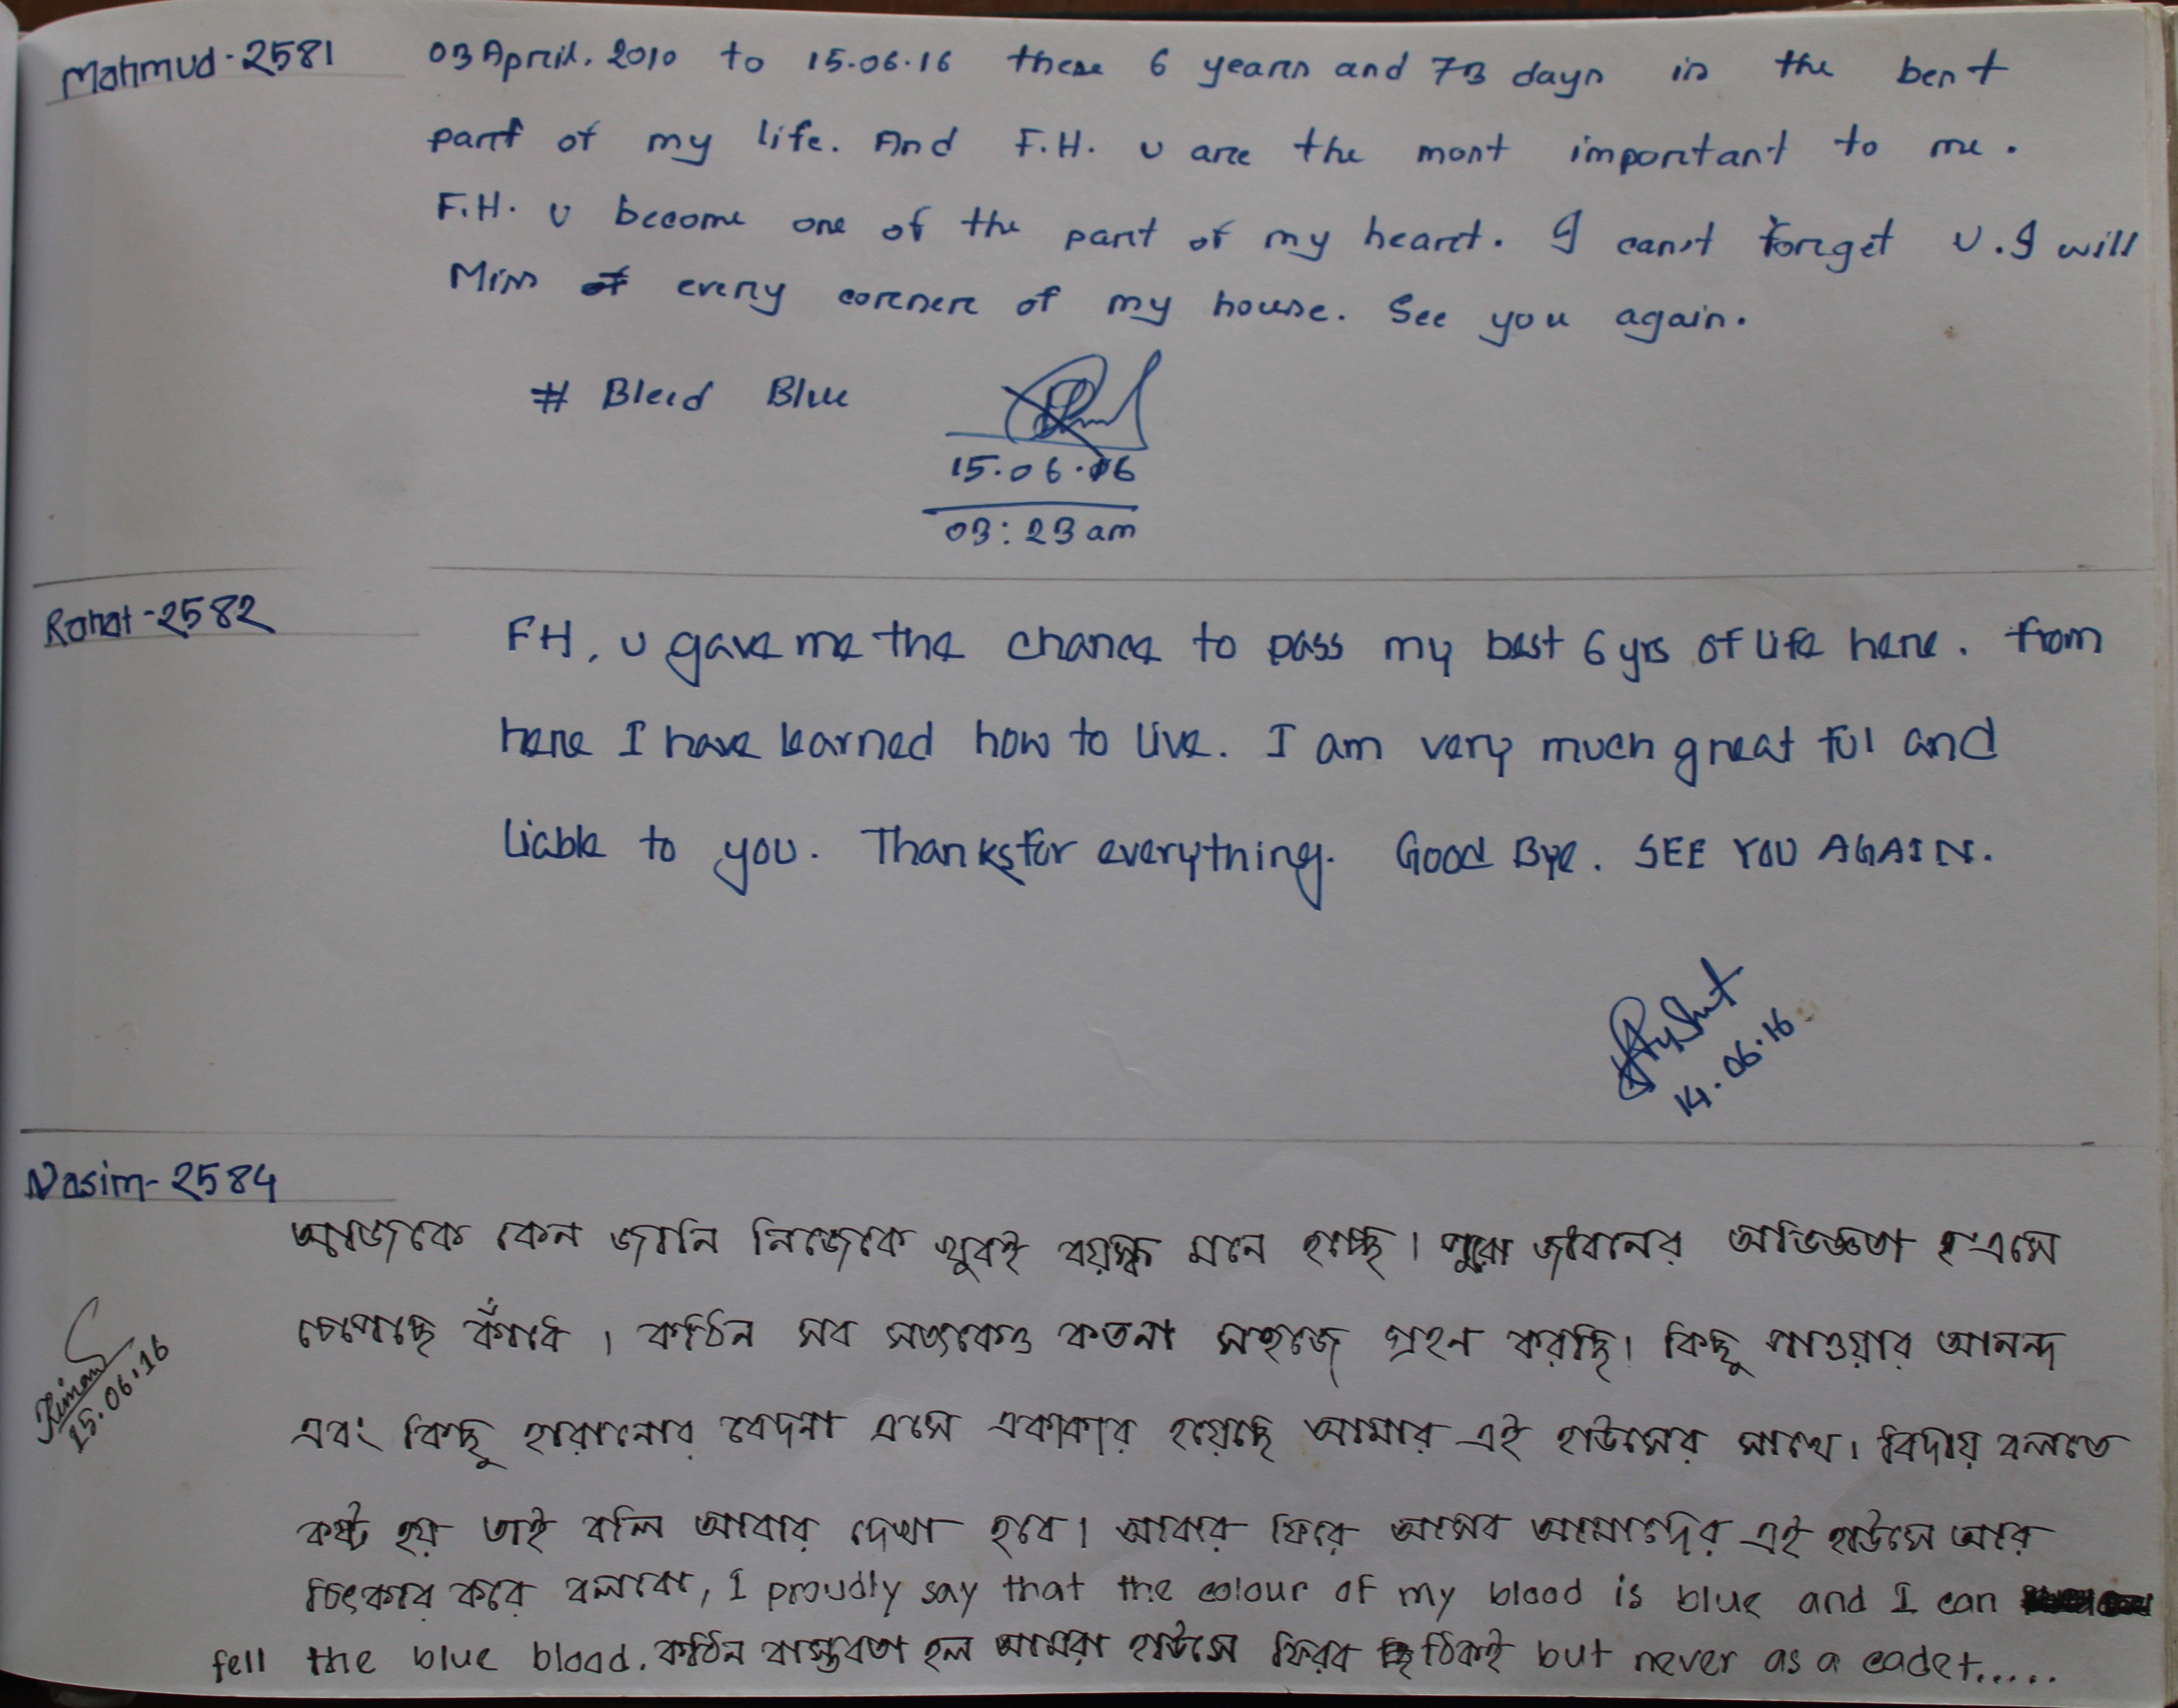 Mahmud - 2581
03 April, 2010 to 15.06.16 these 6 years and 73 days is the best
part of my life. And F.H. u are the most important to me.
F.H. u become one of the part of my heart. I can't forget U. I will
Miss of every corner of my house. See you again.
# Bleed Blue
15.06.16
03:23 am
Rahat - 2582
FH, u gave me the chance to pass my best 6 yrs of life here. from
here I have learned how to live. I am very much great ful and
liable to you. Thanks for everything. Good Bye. SEE YOU AGAIN.
14.06.16
Nasim - 2584
আজকে কেন জানি নিজেকে খুবই বয়স্ক মনে হচ্ছে। পুরো জীবনের অভিজ্ঞতা এসে
চেপেছে কাঁধে। কঠিন সব সত্যকেও কতনা সহজে গ্রহন করছি। কিছু পাওয়ার আনন্দ
এবং কিছু হারানোর বেদনা এসে একাকার হয়েছে আমার এই হাউসের সাথে। বিদায় বলতে
কষ্ট হয় তাই বলি আবার দেখা হবে। আবার ফিরে আসব আমাদের এই হাউসে আর
চিৎকার করে বলবো, I proudly say that the colour of my blood is blue and I can
fell the blue blood. কঠিন বাস্তবতা হল আমরা হাউসে ফিরব ঠিকই but never as a cadet.....
15.06.16